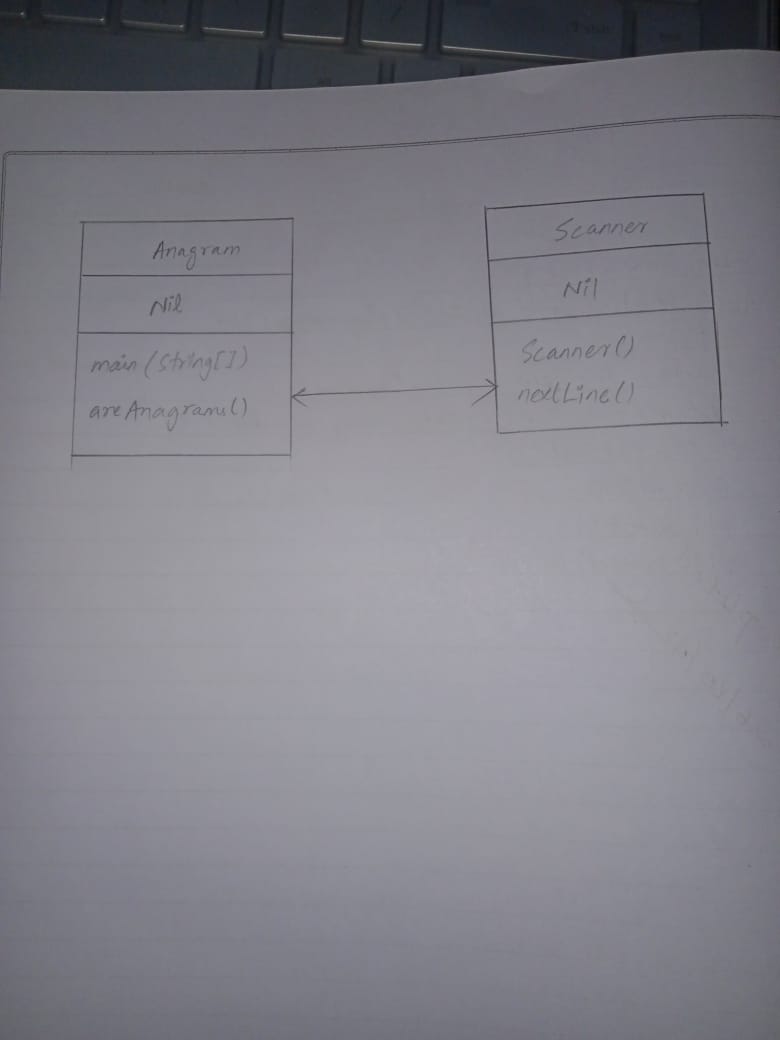 Anagram
Nil
main (String[])
areAnagrams()
Scanner
Nil
Scanner()
nextLine()